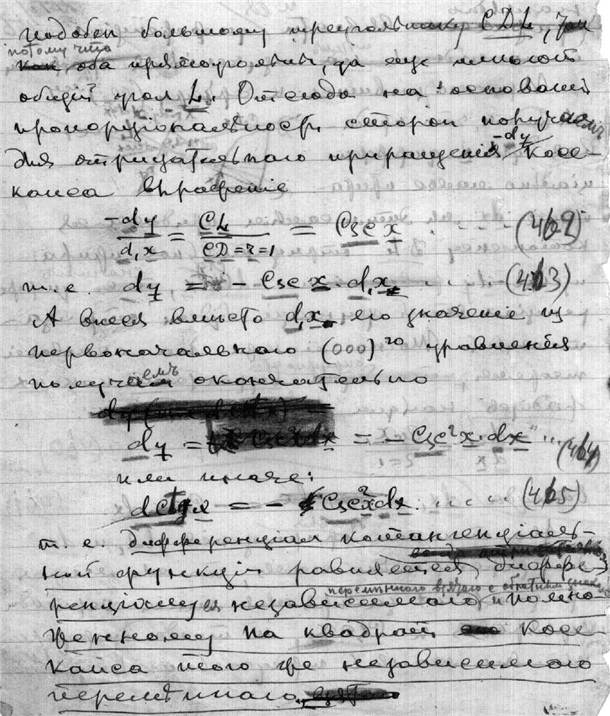 подобен большому треугольнику CDL,
потому что
оба прямоугольны, да еще имеют
общий угол L. Отсюда на основании
пропорциональности сторон получаем
для отрицательного приращения -dy Косе-
канса выражение
-dy/d,x = CL/CD=r=1 = Csc x ..... (462)
т.е. dy = - Csc x · d,x (463)
А внеся вместо d,x его значение из
первоначального (000)го уравнения
получаем окончательно
dy = = - Csc²x·dx ... (464)
или иначе:
dctgx = - Csc²xdx ..... (465)
т.е. дифференциал котангенциаль-
ной функции равняется диффе-
переменного взятого с обратным знаком
ренциалу независимаго и помно-
женному на квадрат Косе-
канса того же независимого
переменного